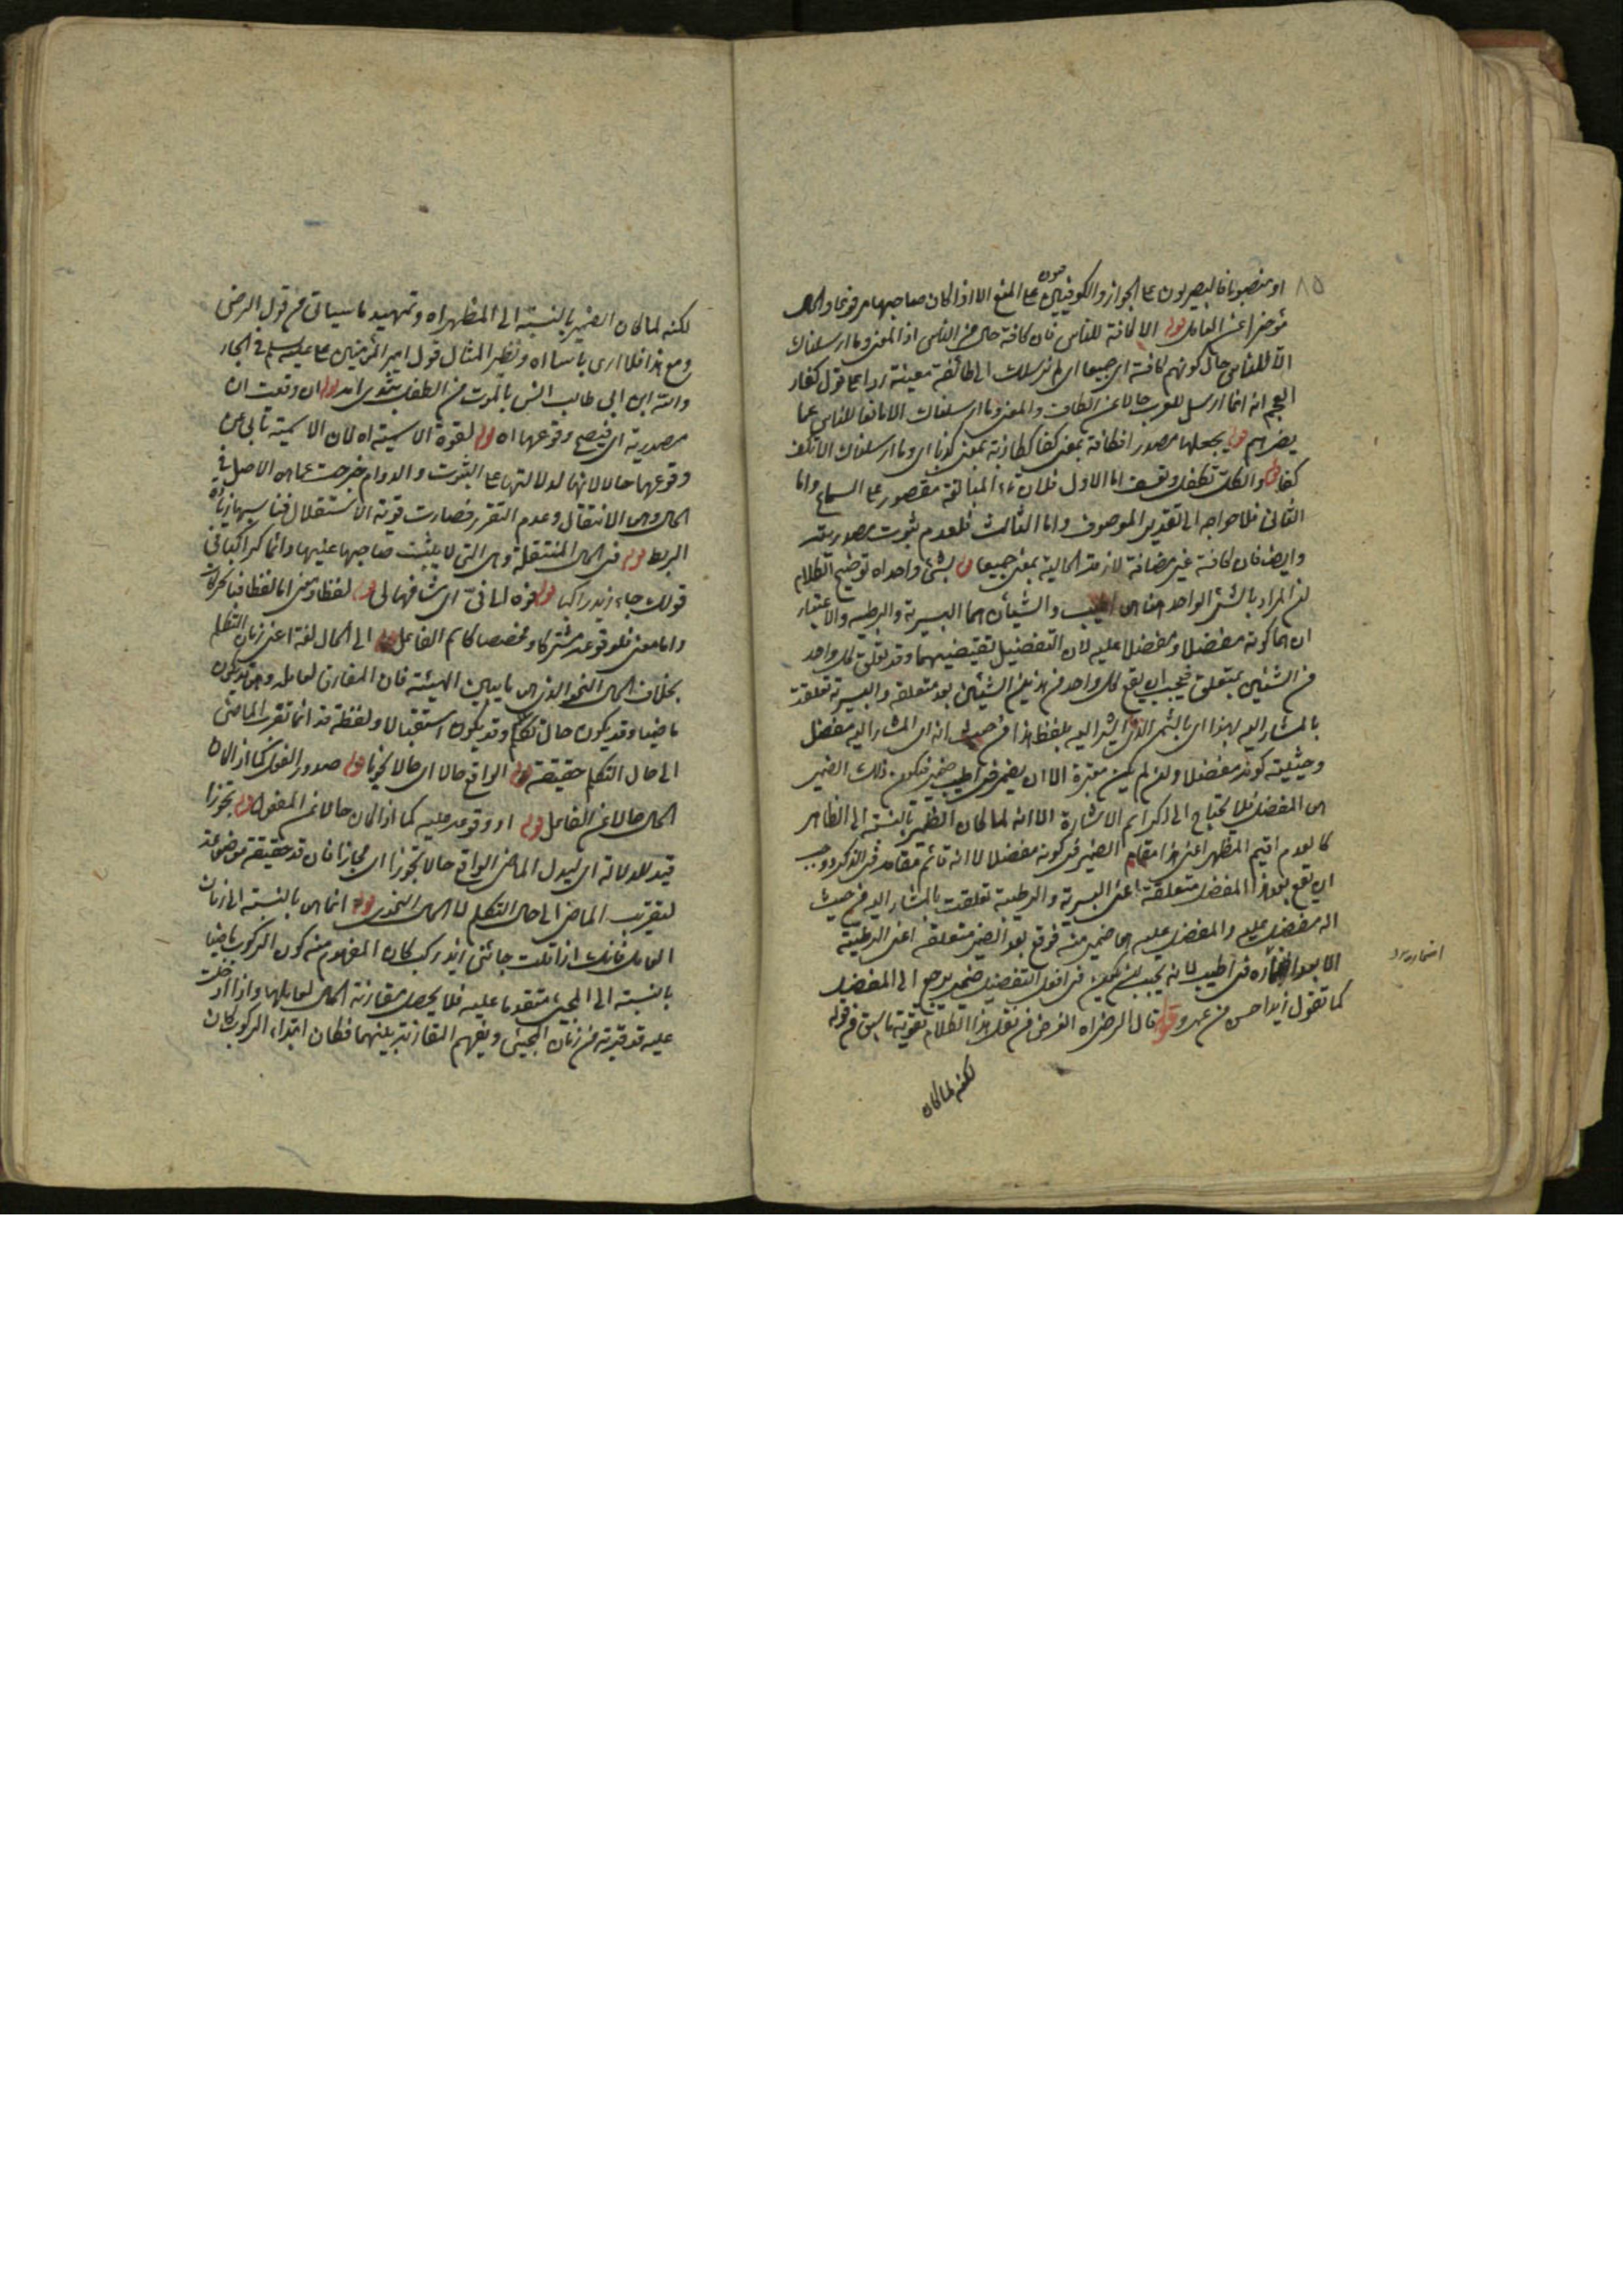 ٨٥
او منصوبا فالبصريون على الجواز والكوفيون على المنع الا اذا كان صاحبها مرفوعا والحال
مؤخرا عن العامل قوله الا كافة للناس فان كافة حال من الناس اذ المعنى وما ارسلناك
الا للناس حال كونهم كافة اى جميعا اى لم نرسلك الى طائفة معينة ردا على قول كفار
العجم انه انما ارسل للعرب حالا عن الكاف والمعنى وما ارسلناك الا مانعا للناس عما
يضرهم قوله يجعلها مصدرا فكافة بمعنى كفا ككاذبة بمعنى كذبا اى وما ارسلناك الا تكف
كفا قوله والكل تكلف وتعسف اما الاول فلان تاء المبالغة مقصور على السماع واما
الثانى فلا حواجه الى تقدير الموصوف واما الثالث فلعدم ثبوت مصدريته
وايضا فان كافة غير مضافة لازمة الحالية بمعنى جميعا قوله بشئ واحد اه توضيح الكلام
ان المراد بالشئ الواحد هنا هى والشيئان هما البسرية والرطبية والاعتبار
ان هما كونه مفضلا ومفضلا عليه لان التفضيل يقتضيهما وقد تعلق كل واحد
من الشيئين بمتعلق فيجب ان يقع كل واحد من هذين الشيئين بعد متعلقه والبسرية تعلقت
بالمشار اليه بهذا اى بالتمر الذى اشير اليه بلفظ هذا من حيث انه اى المشار اليه مفضل
وحيثية كونه مفضلا وان لم يكن معتبرة الا ان يضمر فى اطيب ضمير فيكون ذلك الضمير
هى المفضل فلا يحتاج الى ذكر اسم الاشارة الا انه لما كان الضمير بالنسبة الى الظاهر
كالعدم اقيم المظهر اعنى هذا مقام الضمير فى كونه مفضلا لا انه قائم مقامه فى الذكر ووجب
ان يقع بعد هذا المفضل متعلقه اعنى البسرية والرطبية تعلقت بالمشار اليه من حيث
انه مفضل عليه والمفضل عليه هى ضمير منه فوقع بعد الضمير متعلقه اعنى الرطبية
الا بعد اضماره فى اطيب لانه يجب ان يكون فى افعل التفضيل ضمير يرجع الى المفضل
كما تقول زيد احسن من عمرو قوله قال الرضى اه الغرض من نقل هذا الكلام تقوية ما سبق من قوله
لكنه لما كان
لكنه لما كان الضمير بالنسبة الى المظهر اه وتمهيد ما سيأتى من قول الرضى
ومع هذا فلا ارى باسا اه ونظير المثال قول امير المؤمنين على عليه السلم فى الجار
والله ابن ابى طالب انس بالموت من الطفل بثدى امه قوله ان وقعت ان
مصدرية اى فيصح وقوعها اه قوله لقوة الاسمية اه لان الاسمية تأبى عن
وقوعها حالا لانها لدلالتها على الثبوت والدوام خرجت عما هو الاصل فى
الحال وهى الانتقال وعدم التقرر فصارت قوية الاستقلال فناسبها زيادة
الربط قوله فى الحال المنتقلة وهى التى لا يلبث صاحبها عليها دائما كراكبا فى
قولك جاء زيد راكبا قوله فوه الى فى اى مشافها لى قوله لفظا ومعنى اما لفظا فبالحركات
واما معنى فلوقوعه مشتركا ومخصصا كاسم الفاعل قوله الى الحال لغة اعنى زمان التكلم
بخلاف الحال النحوى الذى هى ما يبين الهيئة فان المقارن لعامله وهى قد يكون
ماضيا وقد يكون حال تكلم وقد يكون استقبالا ولفظة قد انما تقرب الماضى
الى حال التكلم حقيقة قوله الواقع حالا اى حالا نحويا قوله صدور الفعل كما اذا كان
الحال حالا عن الفاعل قوله او وقوعه عليه كما اذا كان حالا عن المفعول قوله تجوزا
قيد للدلالة اى ليدل الماضى الواقع حالا تجوزا اى مجازا فان قد حقيقة موضوعة
لتقريب الماضى الى حال التكلم لا الحال النحوى قوله انما هى بالنسبة الى زمان
العامل فانك اذا قلت جائنى زيد ركب كان المفهوم منه كون الركوب ماضيا
بالنسبة الى المجئ متقدما عليه فلا يحصل مقارنة الحال لعاملها واذا ادخلت
عليه قد قربته من زمان المجيئ ويفهم المقارنة بينهما فكان ابتداء الركوب كان